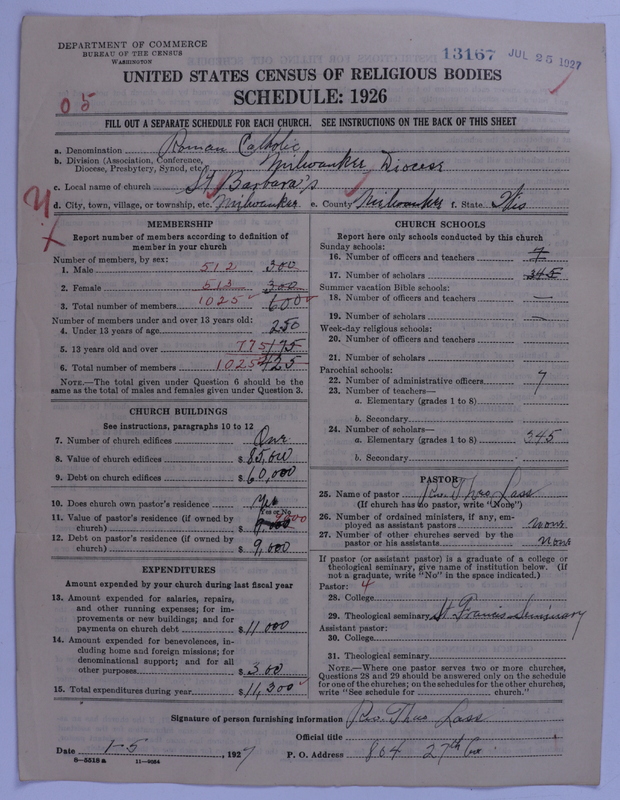 DEPARTMENT OF COMMERCE
BUREAU OF THE CENSUS
WASHINGTON
13167 JUL 25 1927
UNITED STATES CENSUS OF RELIGIOUS BODIES
SCHEDULE: 1926
05
FILL OUT A SEPARATE SCHEDULE FOR EACH CHURCH. SEE INSTRUCTIONS ON THE BACK OF THIS SHEET
a. Denomination Roman Catholic
b. Division (Association, Conference, Diocese, Presbytery, Synod, etc.) Milwaukee Diocese
c. Local name of church St Barbara's
d. City, town, village, or township, etc. Milwaukee e. County Milwaukee f. State Wis
MEMBERSHIP
Report number of members according to definition of
member in your church
Number of members, by sex:
1. Male 512 300
2. Female 513 300
3. Total number of members 1025 600
Number of members under and over 13 years old:
4. Under 13 years of age 250
5. 13 years old and over 775 175
6. Total number of members 1025 425
NOTE.—The total given under Question 6 should be
same as the total of males and females given under Question 3.
CHURCH BUILDINGS
See instructions, paragraphs 10 to 12
7. Number of church edifices One
8. Value of church edifices $85,000
9. Debt on church edifices $60,000
10. Does church own pastor's residence Yes
Yes or No
11. Value of pastor's residence (if owned by
church) $ 9000
12. Debt on pastor's residence (if owned by
church) $9,000
EXPENDITURES
Amount expended by your church during last fiscal year
13. Amount expended for salaries, repairs,
and other running expenses; for im-
provements or new buildings; and for
payments on church debt $11,000
14. Amount expended for benevolences, in-
cluding home and foreign missions; for
denominational support; and for all
other purposes $300
15. Total expenditures during year $11,300
CHURCH SCHOOLS
Report here only schools conducted by this church
Sunday schools:
16. Number of officers and teachers 7
17. Number of scholars 345
Summer vacation Bible schools:
18. Number of officers and teachers —
19. Number of scholars —
Week-day religious schools:
20. Number of officers and teachers
21. Number of scholars
Parochial schools:
22. Number of administrative officers 7
23. Number of teachers—
a. Elementary (grades 1 to 8)
b. Secondary
24. Number of scholars—
a. Elementary (grades 1 to 8) 345
b. Secondary
PASTOR
25. Name of pastor Rev. Theo Lass
(If church has no pastor, write "None")
26. Number of ordained ministers, if any, em-
ployed as assistant pastors none
27. Number of other churches served by the
pastor or his assistants none
If pastor (or assistant pastor) is a graduate of a college or
theological seminary, give name of institution below. (If
not a graduate, write "No" in the space indicated.)
Pastor: 4
28. College
29. Theological seminary St Francis Seminary
Assistant pastor:
30. College
31. Theological seminary
NOTE.—Where one pastor serves two or more churches,
Questions 28 and 29 should be answered only on the schedule
for one of the churches; on the schedules for the other churches,
write "See schedule for church."
Signature of person furnishing information Rev. Theo Lass
Official title
Date 1-5, 1927 P. O. Address 804 27th Ave.
8—5518 a 11—9054